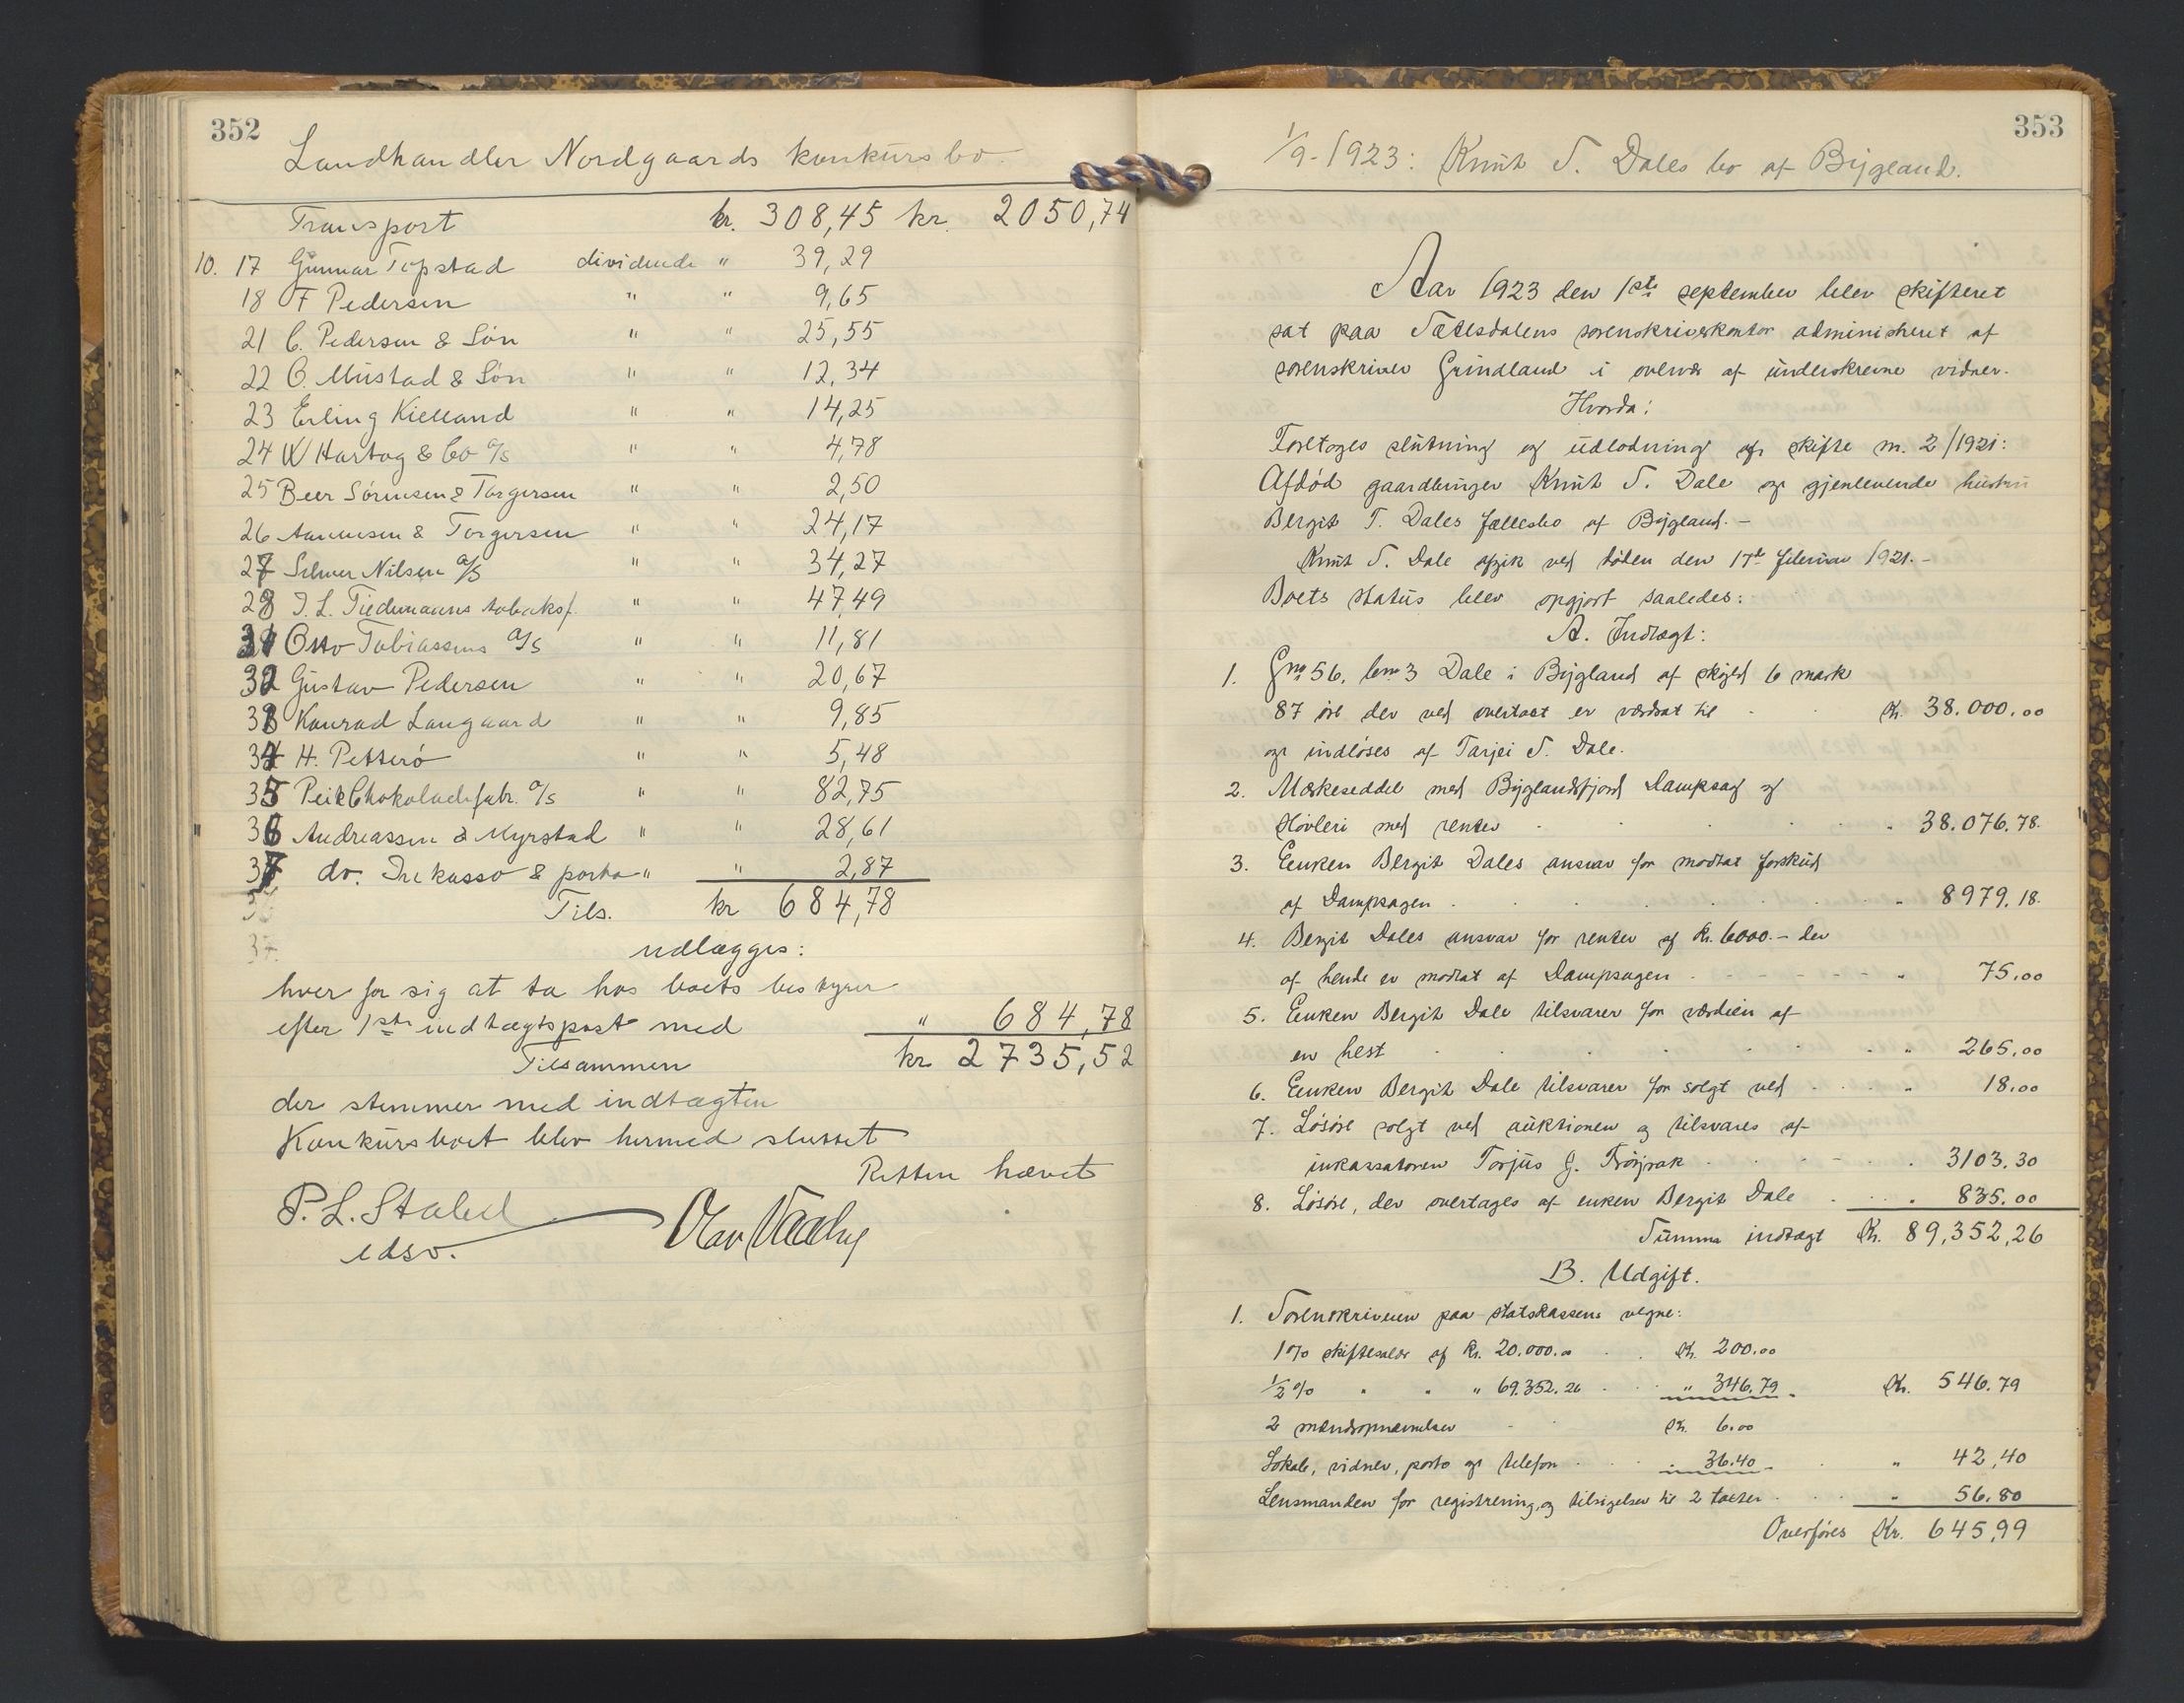 352
Landhandler Nordgaards konkursbo.
Transport kr. 308,45 kr. 2050,74
10. 17 Gunnar Topstad dividende " 39,29
18 F Pedersen " " 9,65
21 C. Pedersen & Søn " " 25,55
22 O. Mustad & Søn " " 12,34
23 Erling Kielland " " 14,25
24 W Hartog & Co A/S " " 4,78
25 Beer Sörensen & Torgersen " " 2,50
26 Aanensen & Torgersen " " 24,17
27 Selmer Nilsen A/S " " 34,27
28 J. L. Tiedemanns tobaksf. " " 47,49
31 Otto Tobiassens A/S " " 11,81
32 Gustav Pedersen " " 20,67
33 Konrad Langaard " " 9,85
34 H. Petterö " " 5,48
35 Peik Chokoladefabr. A/S " " 82,75
36 Andreassen & Myrstad " " 28,61
37 do. Inkasso & porto " " 2,87
Tils. kr 684,78
37. udlægges:
hver for sig at ta hos boets bestyrer
efter 1ste indtægtspost med " 684,78
Tilsammen kr 2735,52
der stemmer med indtægten
Konkursboet blev hermed sluttet
Retten hævet
P. L. Stabel
edsv.
353
1/9-1923: Knut S. Dales bo af Bygland.
Aar 1923 den 1ste september blev skifteret
sat paa Sætesdalens sorenskriverkontor administreret af
sorenskriver Grindland i overvær af underskrevne vidner.
Hvorda:
Foretoges slutning og udlodning af skifte nr. 2/1921:
Afdöd gaardbruger Knut S. Dale og gjenlevende hustru
Bergit T. Dales fællesbo af Bygland. –
Knut S. Dale afgik ved döden den 17de februar 1921. –
Boets status blev opgjort saaledes:
A. Indtægt:
1. Gno 56, bno 3 Dale i Bygland af skyld 6 mark
87 øre der ved overtaxt er værdsat til Kr. 38.000.00
og indlöses af Tarjei S. Dale.
2. Mærkeseddel med Byglandsfjord Dampsag og
Hövleri med renter " 38.076.78.
3. Enken Bergit Dales ansvar for modtat forskud
af Dampsagen " 8979.18.
4. Bergit Dales ansvar for renter af Kr. 6000.– der
af hende er modtat af Dampsagen " 75.00
5. Enken Bergit Dale tilsvarer for værdien af
en hest " 265.00
6. Enken Bergit Dale tilsvarer for solgt ved " 18.00
7. Lösöre solgt ved auktionen og tilsvares af
inkassatoren Torjus G. Fröysak " 3103.30
8. Lösöre, der overtages af enken Bergit Dale " 835.00
Summa indtægt Kr. 89,352,26
B. Udgift.
1. Sorenskriveren paa statskassens vegne:
1% skiftesalær af Kr. 20.000.00 Kr. 200.00
1/2 % " " " 69.352.26 " 346.79 Kr. 546.79
2 mændsopnævnelser Kr. 6.00
Lokale, vidner, porto og telefon 36.40 " 42,40
Lensmanden for registrering og tilsigelser til 2 taxter " 56.80
Overføres Kr. 645,99